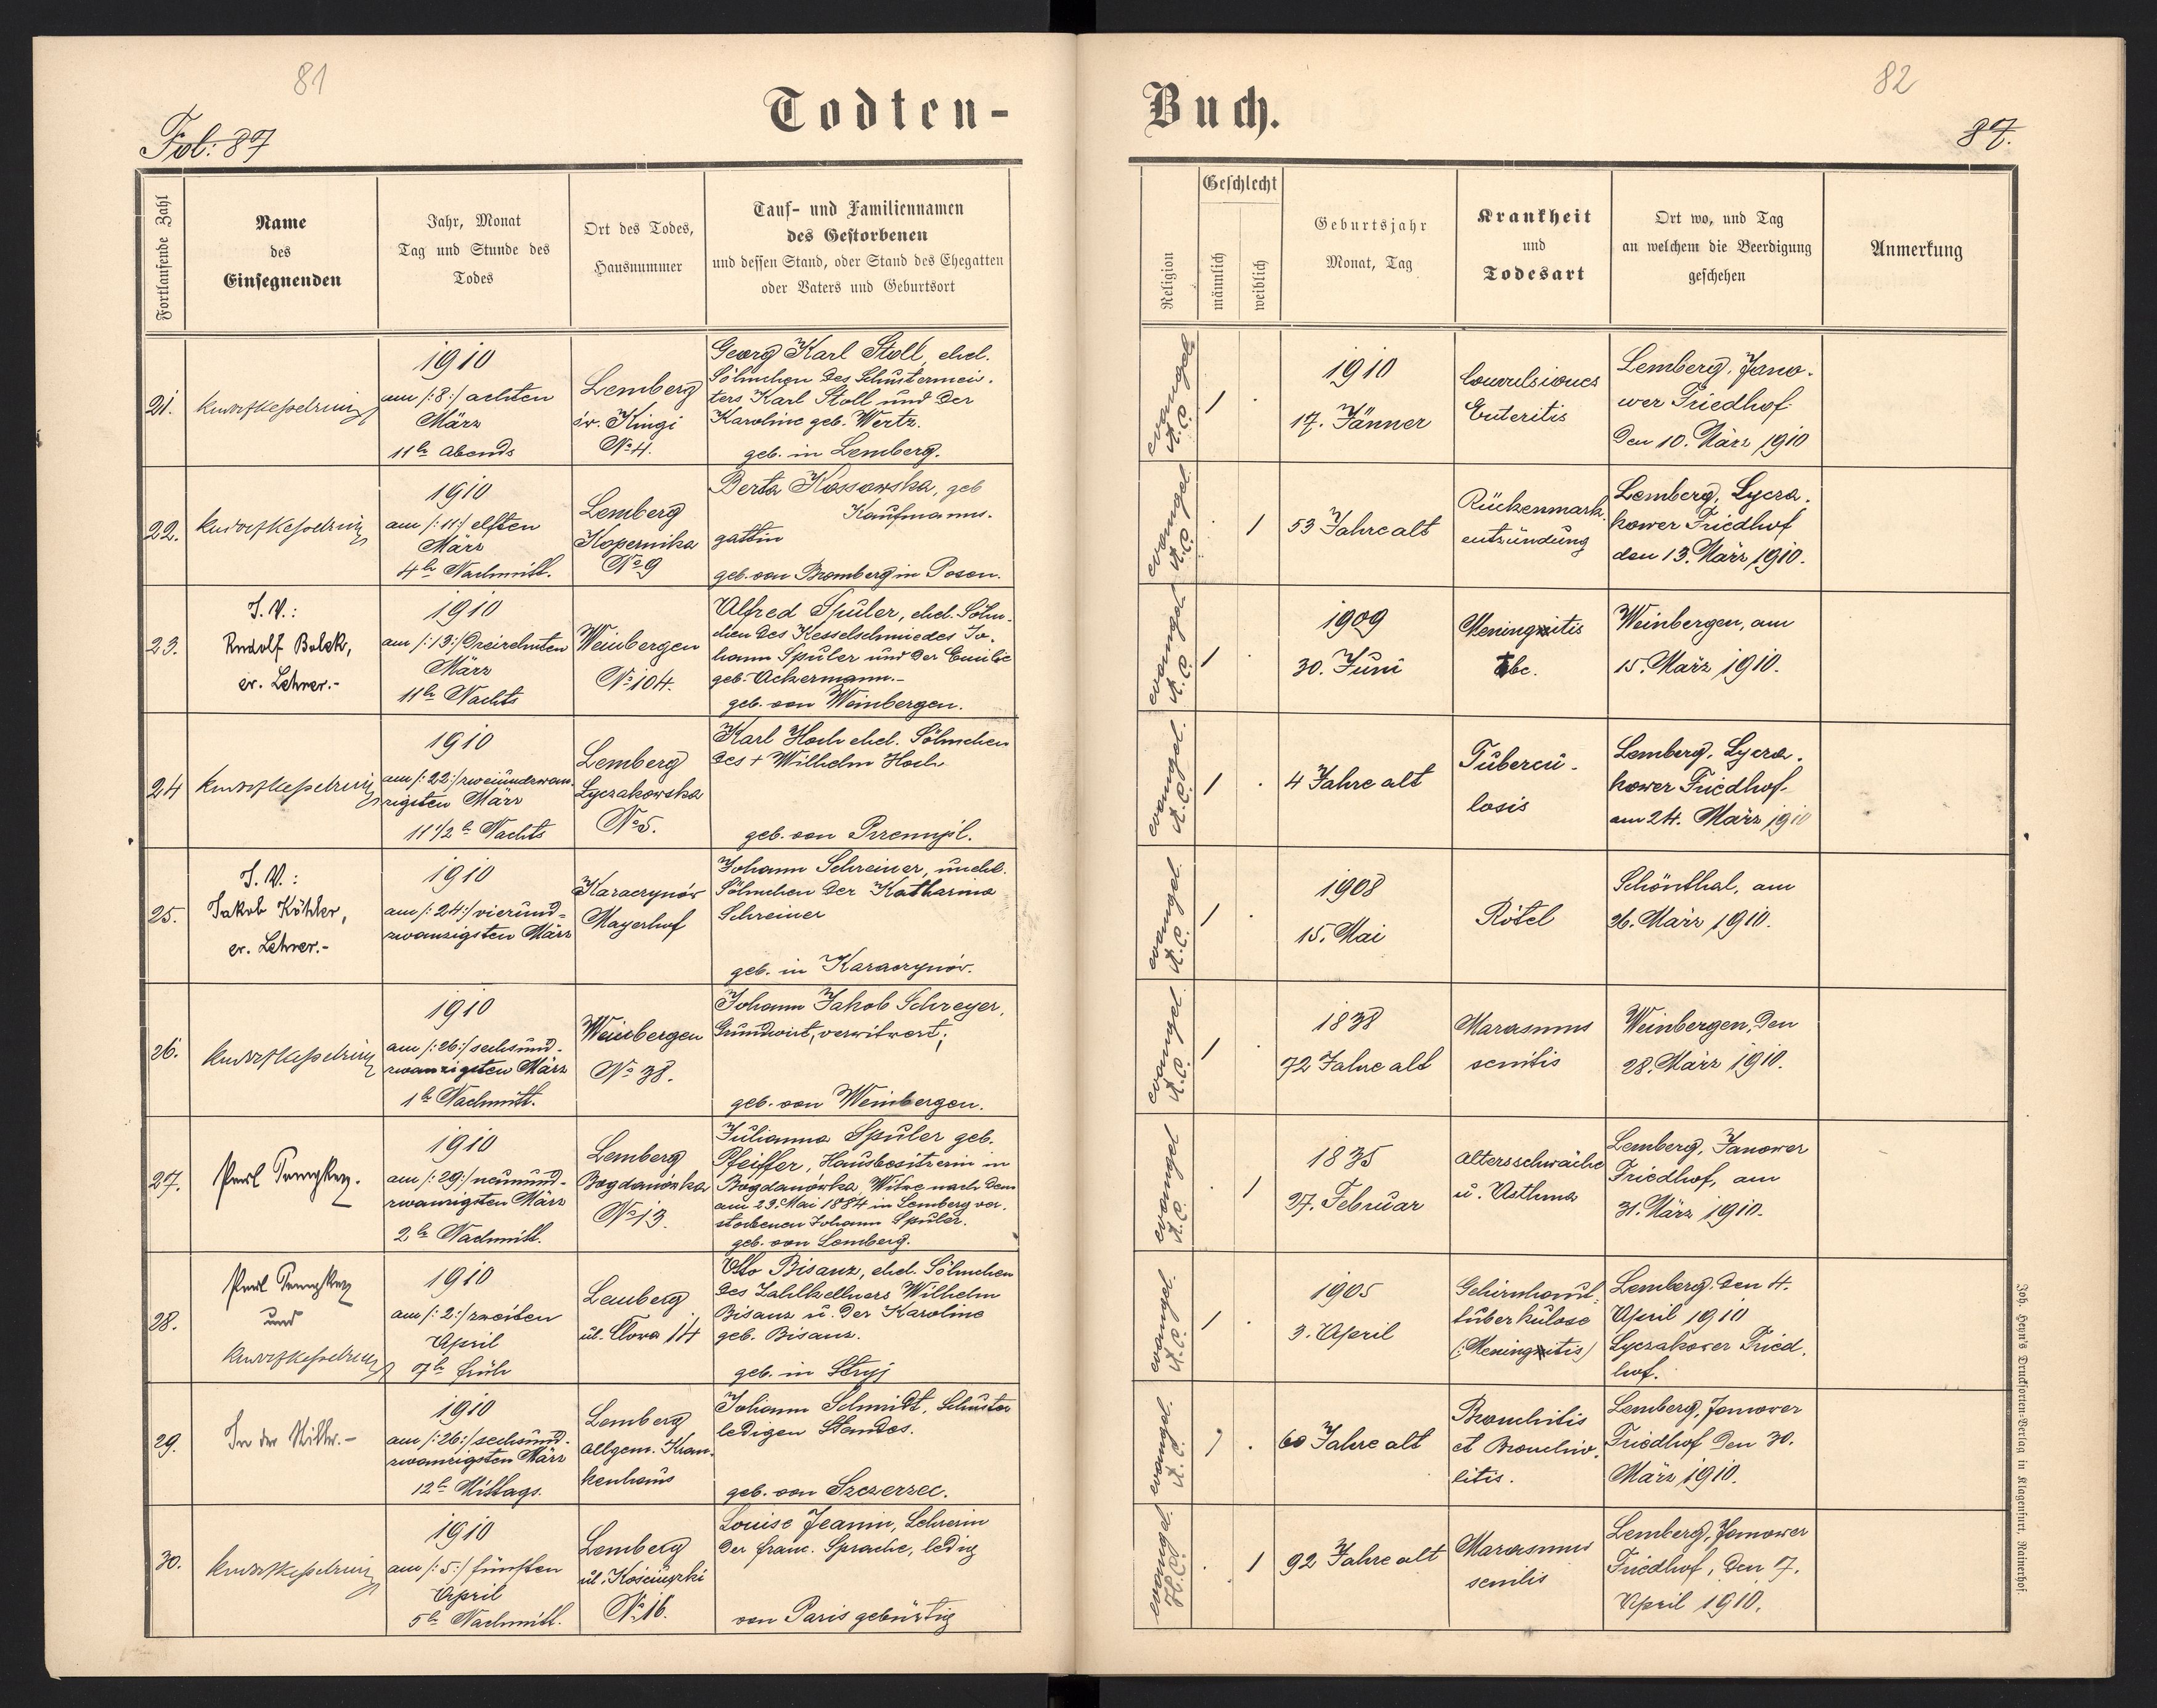 81
Fol: 87
Todten-
Fortlaufende Zahl
Name
des
Einsegnenden
Jahr, Monat
Tag und Stunde des
Todes
Ort des Todes,
Hausnummer
Tauf- und Familiennamen
des Gestorbenen
und dessen Stand, oder Stand des Ehegatten
oder Vaters und Geburtsort
82
Buch.
87.
Religion
Geschlecht
männlich
weiblich
Geburtsjahr
Monat, Tag
Krankheit
und
Todesart
Ort wo, und Tag
an welchem die Beerdigung
geschehen
Anmerkung
21.
1910
am /:8:/ achten
März
11h Abends
Lemberg
św. Kingi
No 4.
Georg Karl Stoll, ehel.
Söhnchen des Schustermei-
ters Karl Stoll und der
Karoline geb. Wertz.
geb. in Lemberg.
evangel.
A.C.
1 .
1910
17. Jänner
Convulsiones
Enteritis
Lemberg, Jano-
wer Friedhof
den 10. März 1910
22.
1910
am /:11:/ elften
März
4h Nachmitt.
Lemberg
Kopernika
No 9
Berta Kossowska, geb
Kaufmanns-
gattin
geb. von Bromberg in Posen.
evangel.
A.C.
. 1
53 Jahre alt
Rückenmark-
entzündung
Lemberg, Lycza-
kower Friedhof
den 13. März 1910.
23.
I. V.:
Rudolf Bolek,
ev. Lehrer.-
1910
am /:13:/ dreizehnten
März
11h Nachts
Weinbergen
No 104.
Alfred Spuler, ehel. Söhn-
chen des Kesselschmiedes Jo-
hann Spuler und der Emilie
geb. Ackermann.-
geb. von Weinbergen.
evangel.
A.C.
1 .
1909
30. Juni
Meningitis
Tbc.
Weinbergen, am
15. März 1910.
24
1910
am /:22:/ zweiundzwan-
zigsten März
11 1/2 h Nachts
Lemberg
Lyczakowska
No 5.
Karl Hoch ehel. Söhnchen
des + Wilhelm Hoch
geb. von Przemyśl.
evangel.
A.C.
1 .
4 Jahre alt
Tubercu-
losis
Lemberg, Lycza-
kower Friedhof
am 24. März 1910
25.
I. V.:
Jakob Köhler,
ev. Lehrer.-
1910
am /:24:/ vierund-
zwanzigsten März
Karaczynów
Mayerhof
Johann Schreiner, unehel.
Söhnchen der Katharina
Schreiner
geb. in Karaczynów.
evangel.
A.C.
1 .
1908
15. Mai
Rötel
Schönthal, am
26. März 1910.
26.
1910
am /:26:/ sechsund-
zwanzigsten März
1h Nachmitt.
Weinbergen
No 38.
Johann Jakob Schreyer,
Grundwirt, verwitwert;
geb. von Weinbergen.
evangel.
A.C.
1 .
1838
72 Jahre alt
Marasmus
senilis
Weinbergen, den
28. März 1910.
27.
1910
am /:29:/ neunund-
zwanzigsten März
2h Nachmitt.
Lemberg
Bogdanówka
No 13.
Julianna Spuler geb.
Pfeiffer, Hausbesitzerin in
Bogdanówka, Witwe nach dem
am 23. Mai 1884 in Lemberg ver-
storbenen Johann Spuler.
geb. von Lemberg.
evangel.
A.C.
. 1
1835
27. Februar
Altersschwäche
u. Asthma
Lemberg, Janower
Friedhof, am
31. März 1910.
28.
und
1910
am /:2:/ zweiten
April
7h früh
Lemberg
ul. Clowa 14
Otto Bisanz, ehel. Söhnchen
des Zahlkellners Wilhelm
Bisanz u. der Karoline
geb. Bisanz.
geb. in Stryj
evangel.
A.C.
1 .
1905
3. April
Gehirnhaut-
tuberkulose
(:Meningitis)
Lemberg, den 4.
April 1910
Lyczakower Fried-
hof.
29.
In der Stille.-
1910
am /:26:/ sechsund-
zwanzigsten März
12h Mittags.
Lemberg
allgem. Kran-
kenhaus
Johann Schmidt, Schuster
ledigen Standes.
geb. von Szczerzec.
evangel.
A.C.
1 .
60 Jahre alt
Bronchitis
et Bronchio-
litis.
Lemberg, Janower
Friedhof den 30.
März 1910.
30.
1910
am /:5:/ fünften
April
5h Nachmitt.
Lemberg
ul. Kościuszki
No 16.
Louise Jeanin, Lehrerin
der franc. Sprache, ledig
von Paris gebürtig
evangel.
H.C.
. 1
92 Jahre alt
Marasmus
senilis
Lemberg, Janower
Friedhof, den 7.
April 1910.
Joh. Heyn's Drucksorten-Verlag in Klagenfurt. Rainerhof.